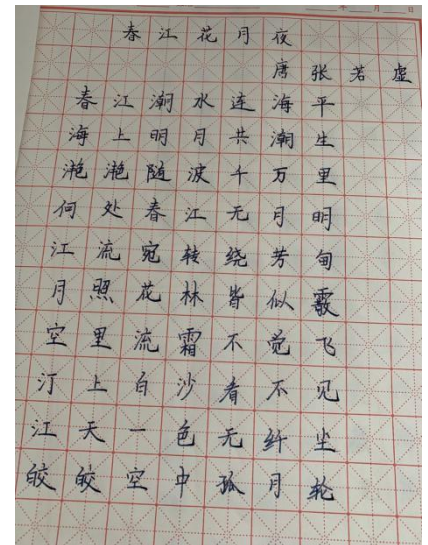 年 月 日
春江花月夜
唐 张若虚
春江潮水连海平
海上明月共潮生
滟滟随波千万里
何处春江无月明
江流宛转绕芳甸
月照花林皆似霰
空里流霜不觉飞
汀上白沙看不见
江天一色无纤尘
皎皎空中孤月轮